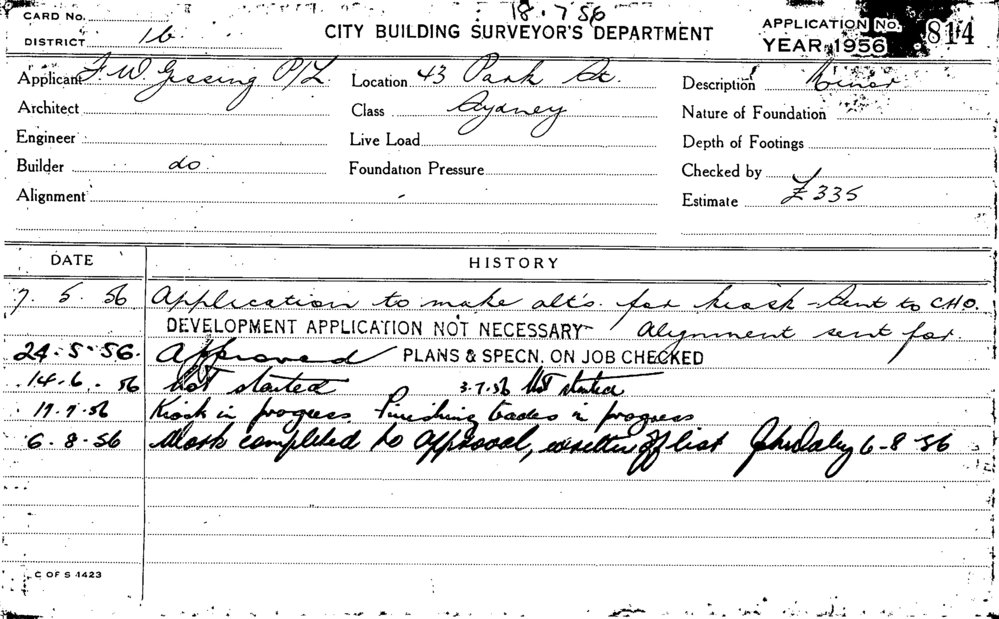 18.7.56
CARD No.
DISTRICT 16
CITY BUILDING SURVEYOR'S DEPARTMENT
APPLICATION No. 814
YEAR 1956
Applicant F. W. Gissing P/L Location 43 Park St. Description Minor
Architect Class Sydney Nature of Foundation
Engineer Live Load Depth of Footings
Builder do. Foundation Pressure Checked by
Alignment Estimate £335
DATE HISTORY
7. 5. 56 Application to make alt's. for kiosk - Sent to C.H.O.
DEVELOPMENT APPLICATION NOT NECESSARY Alignment sent for
24.5.56. Approved PLANS & SPECN. ON JOB CHECKED
14.6.56 Not started 3.7.56 Not started
17.7.56 Kiosk in progress Finishing trades in progress
6-8-56 Work completed to approval, written off list John Daley 6-8-56
C OF S 1423